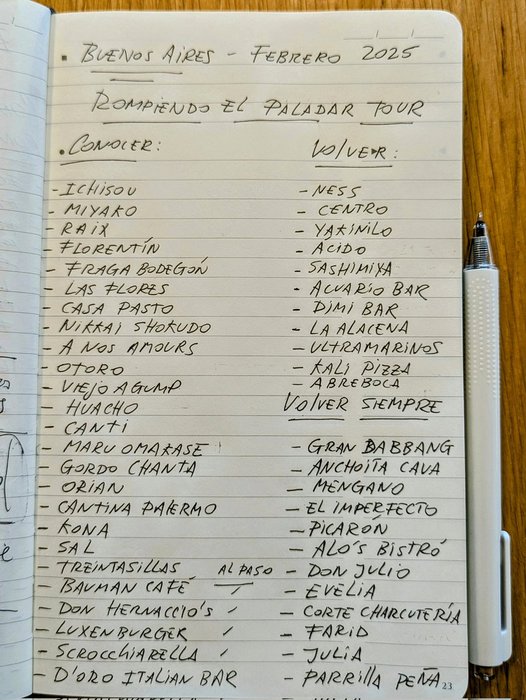 • BUENOS AIRES - FEBRERO 2025
ROMPIENDO EL PALADAR TOUR
• CONOCER:
- ICHISOU
- MIYAKO
- RAIX
- FLORENTÍN
- FRAGA BODEGÓN
- LAS FLORES
- CASA PASTO
- NIKKAI SHOKUDO
- A NOS AMOURS
- OTORO
- VIEJO AGUMP
- HUACHO
- CANTI
- MARU OMAKASE
- GORDO CHANTA
- ORIAN
- CANTINA PALERMO
- KONA
- SAL
- TREINTASILLAS AL PASO
- BAUMAN CAFÉ
- DON HERNACCIO'S
- LUXEN BURGER
- SCROCCHIARELLA
- D'ORO ITALIAN BAR
VOLVER:
- NESS
- CENTRO
- YAKINILO
- ACIDO
- SASHIMIYA
- ACUARIO BAR
- DIMI BAR
- LA ALACENA
- ULTRAMARINOS
- KALI PIZZA
- ABREBOCA
VOLVER SIEMPRE
- GRAN DABBANG
- ANCHOITA CAVA
- MENGANO
- EL IMPERFECTO
- PICARÓN
- ALO'S BISTRÓ
- DON JULIO
- EVELIA
- CORTE CHARCUTERÍA
- FARID
- JULIA
- PARRILLA PEÑA
23